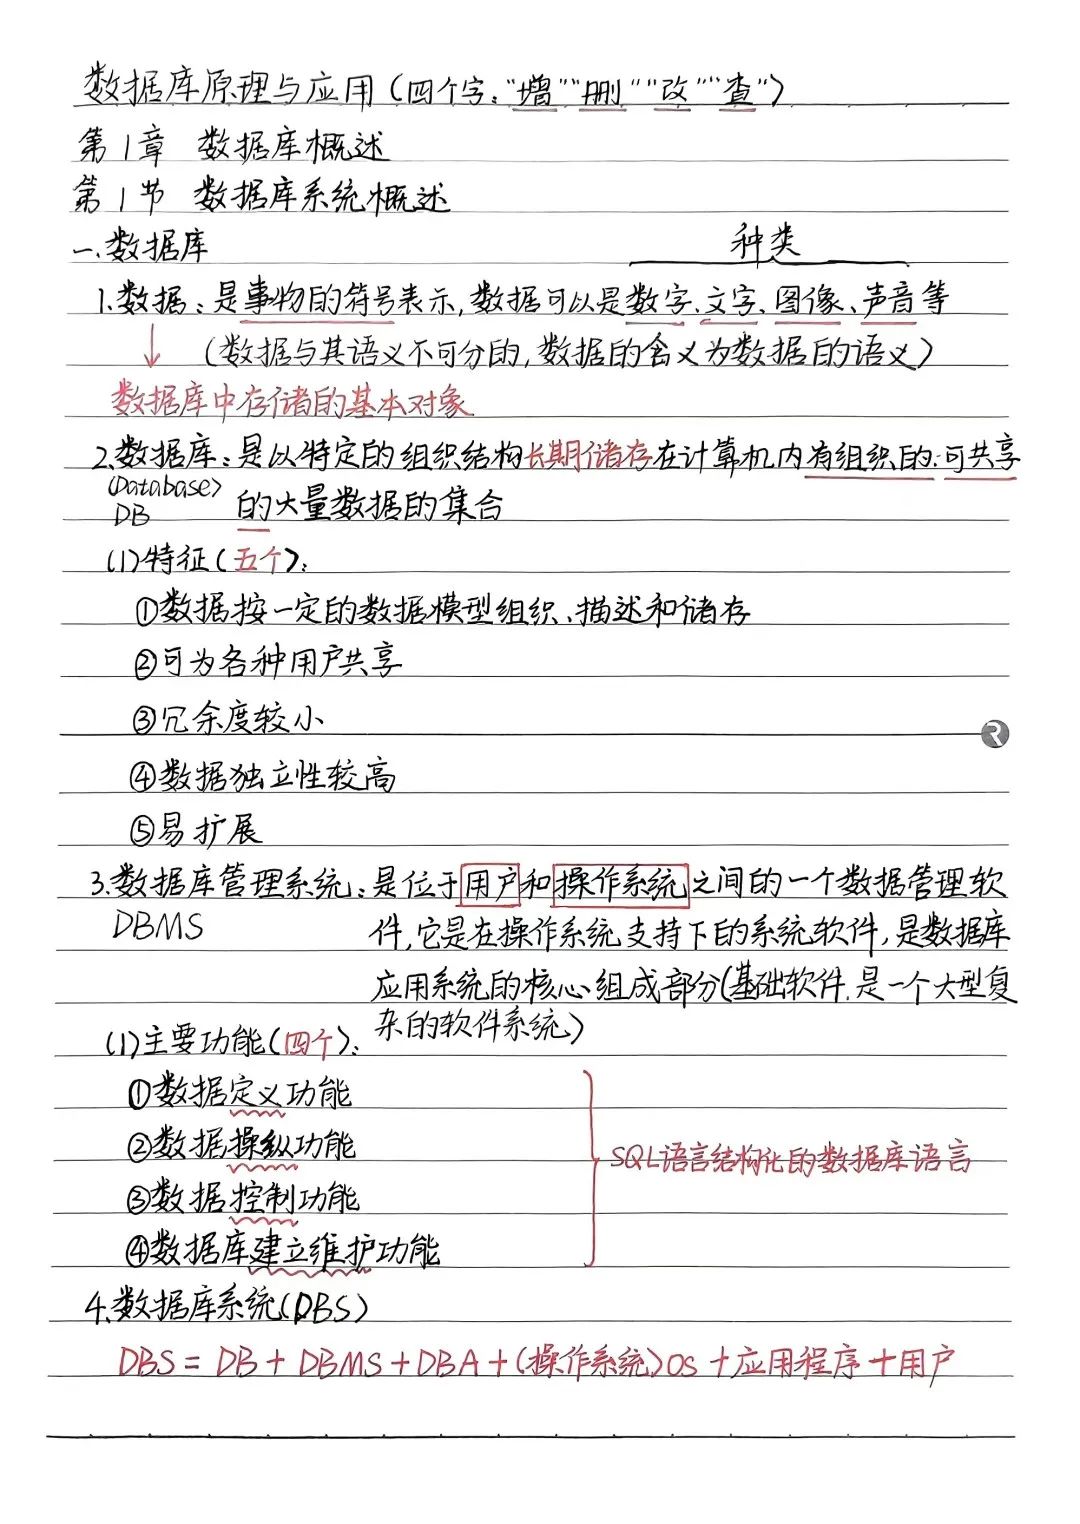 数据库原理与应用（四个字："增""删""改""查"）
第1章 数据库概述
第1节 数据库系统概述
一.数据库
种类
1.数据：是事物的符号表示,数据可以是数字、文字、图像、声音等
（数据与其语义不可分的,数据的含义为数据的语义）
数据库中存储的基本对象
2.数据库：是以特定的组织结构长期储存在计算机内有组织的.可共享
(Database)
DB
的大量数据的集合
(1)特征（五个）：
①数据按一定的数据模型组织、描述和储存
②可为各种用户共享
③冗余度较小
④数据独立性较高
⑤易扩展
3.数据库管理系统：是位于用户和操作系统之间的一个数据管理软
DBMS
件,它是在操作系统支持下的系统软件,是数据库
应用系统的核心组成部分(基础软件.是一个大型复
杂的软件系统)
(1)主要功能（四个）：
①数据定义功能
②数据操纵功能
③数据控制功能
④数据库建立维护功能
SQL语言结构化的数据库语言
4.数据库系统(DBS)
DBS = DB + DBMS + DBA + (操作系统)OS + 应用程序 + 用户
R